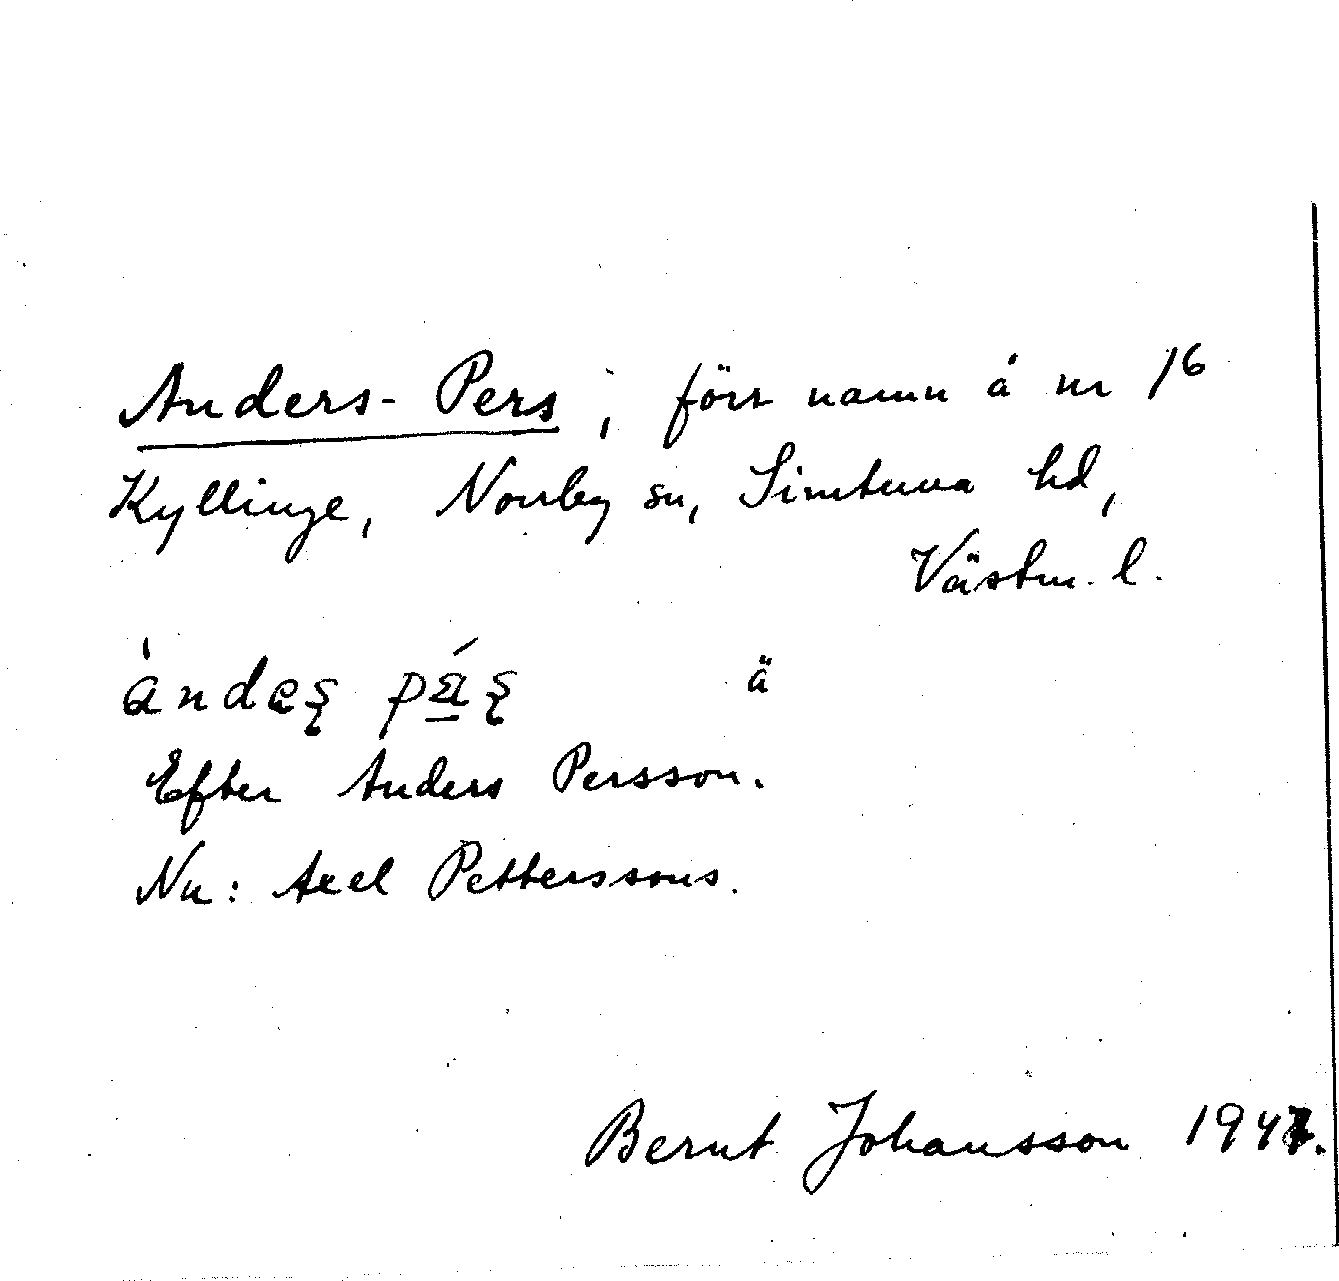 Anders-Pers, förr namn å nr 16
Kyllinge, Norrby sn, Simtuna hd,
Västm. l.
ä
Efter Anders Persson.
Nu: Axel Petterssons.
Bernt Johansson